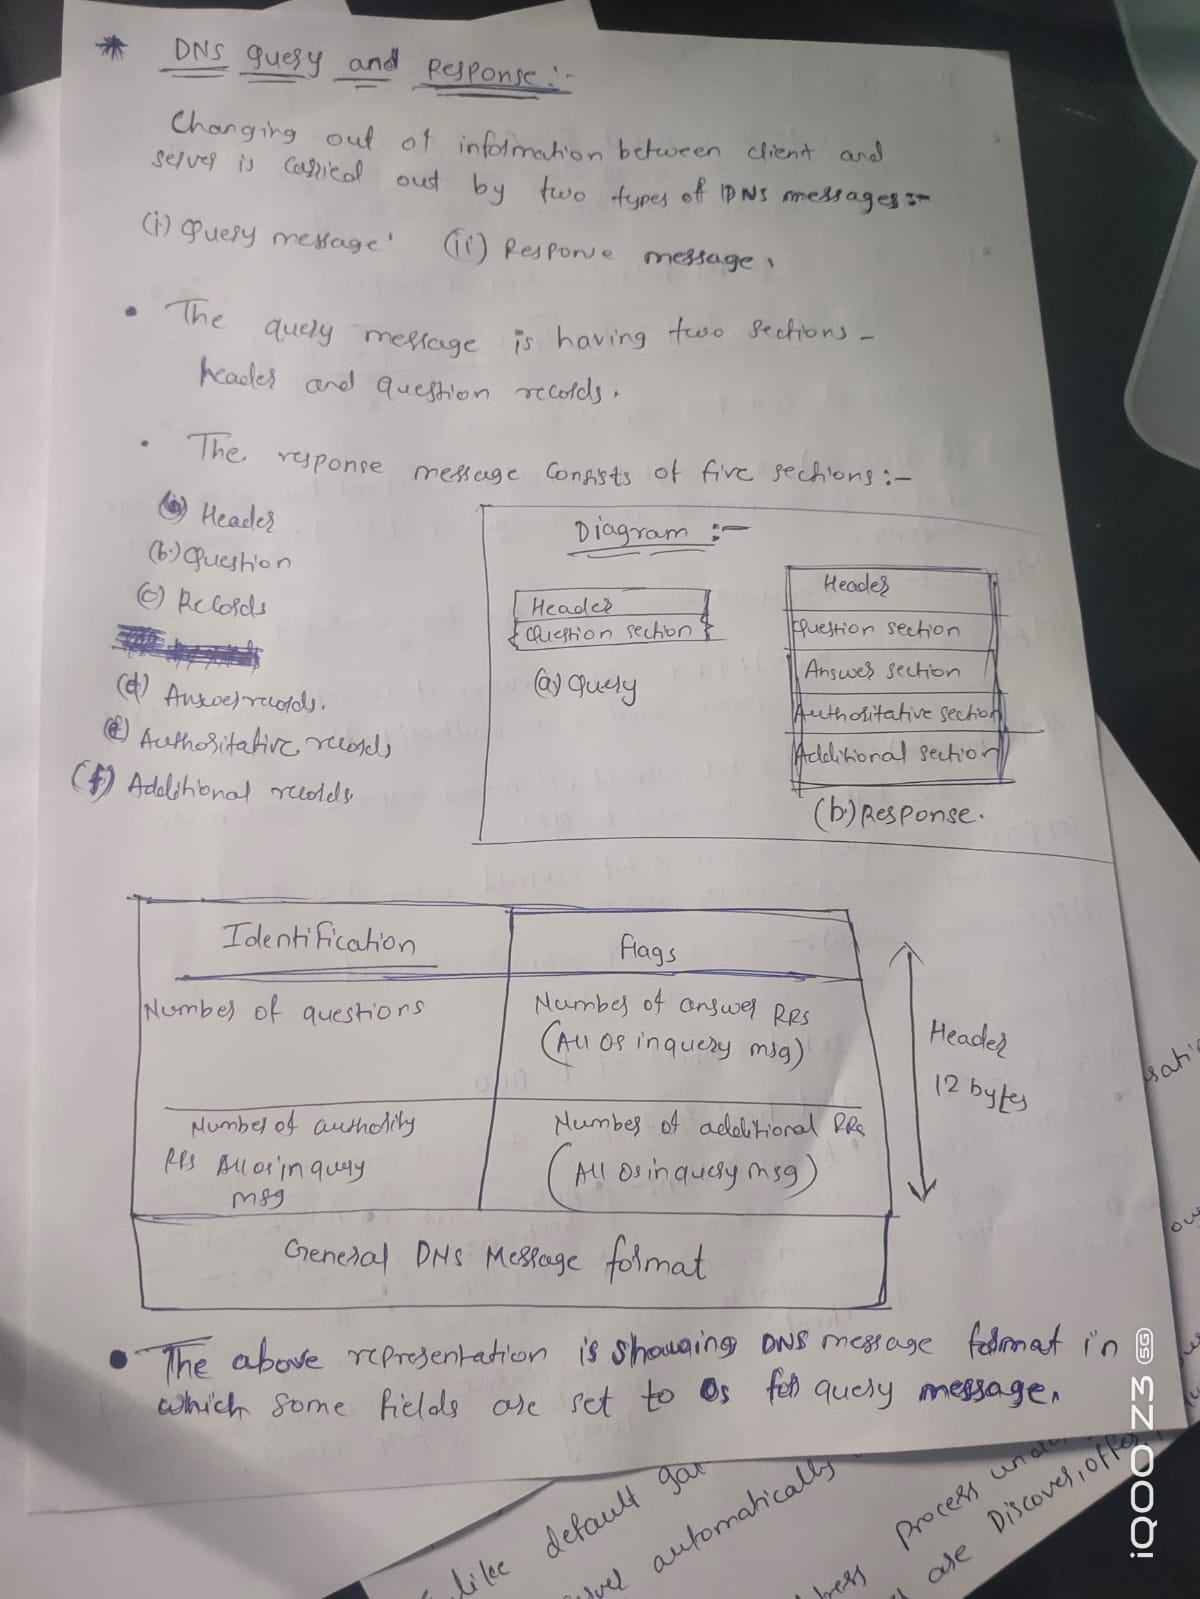 * DNS query and Response:-
Changing out of information between client and
server is carried out by two types of DNS messages:-
(i) Query message. (ii) Response message.
• The query message is having two sections -
header and question records.
• The response message consists of five sections:-
(a) Header
(b.) Question
(c) Records
(d) Answer records.
(e) Authoritative records
(f) Additional records
Diagram :-
Header
Question section
(a) Query
Header
Question section
Answer section
Authoritative section
Additional section
(b.) Response.
Identification
Flags
Number of questions
Number of answer RRs
(All 0s in query msg)
Number of authority
RRs All 0s in query
msg
Number of additional RRs
(All 0s in query msg)
Header
12 bytes
General DNS Message format
• The above representation is showing DNS message format in
which some fields are set to 0s for query message.
like default
automatically
process
are Discover, offer,
iQOO Z3 5G